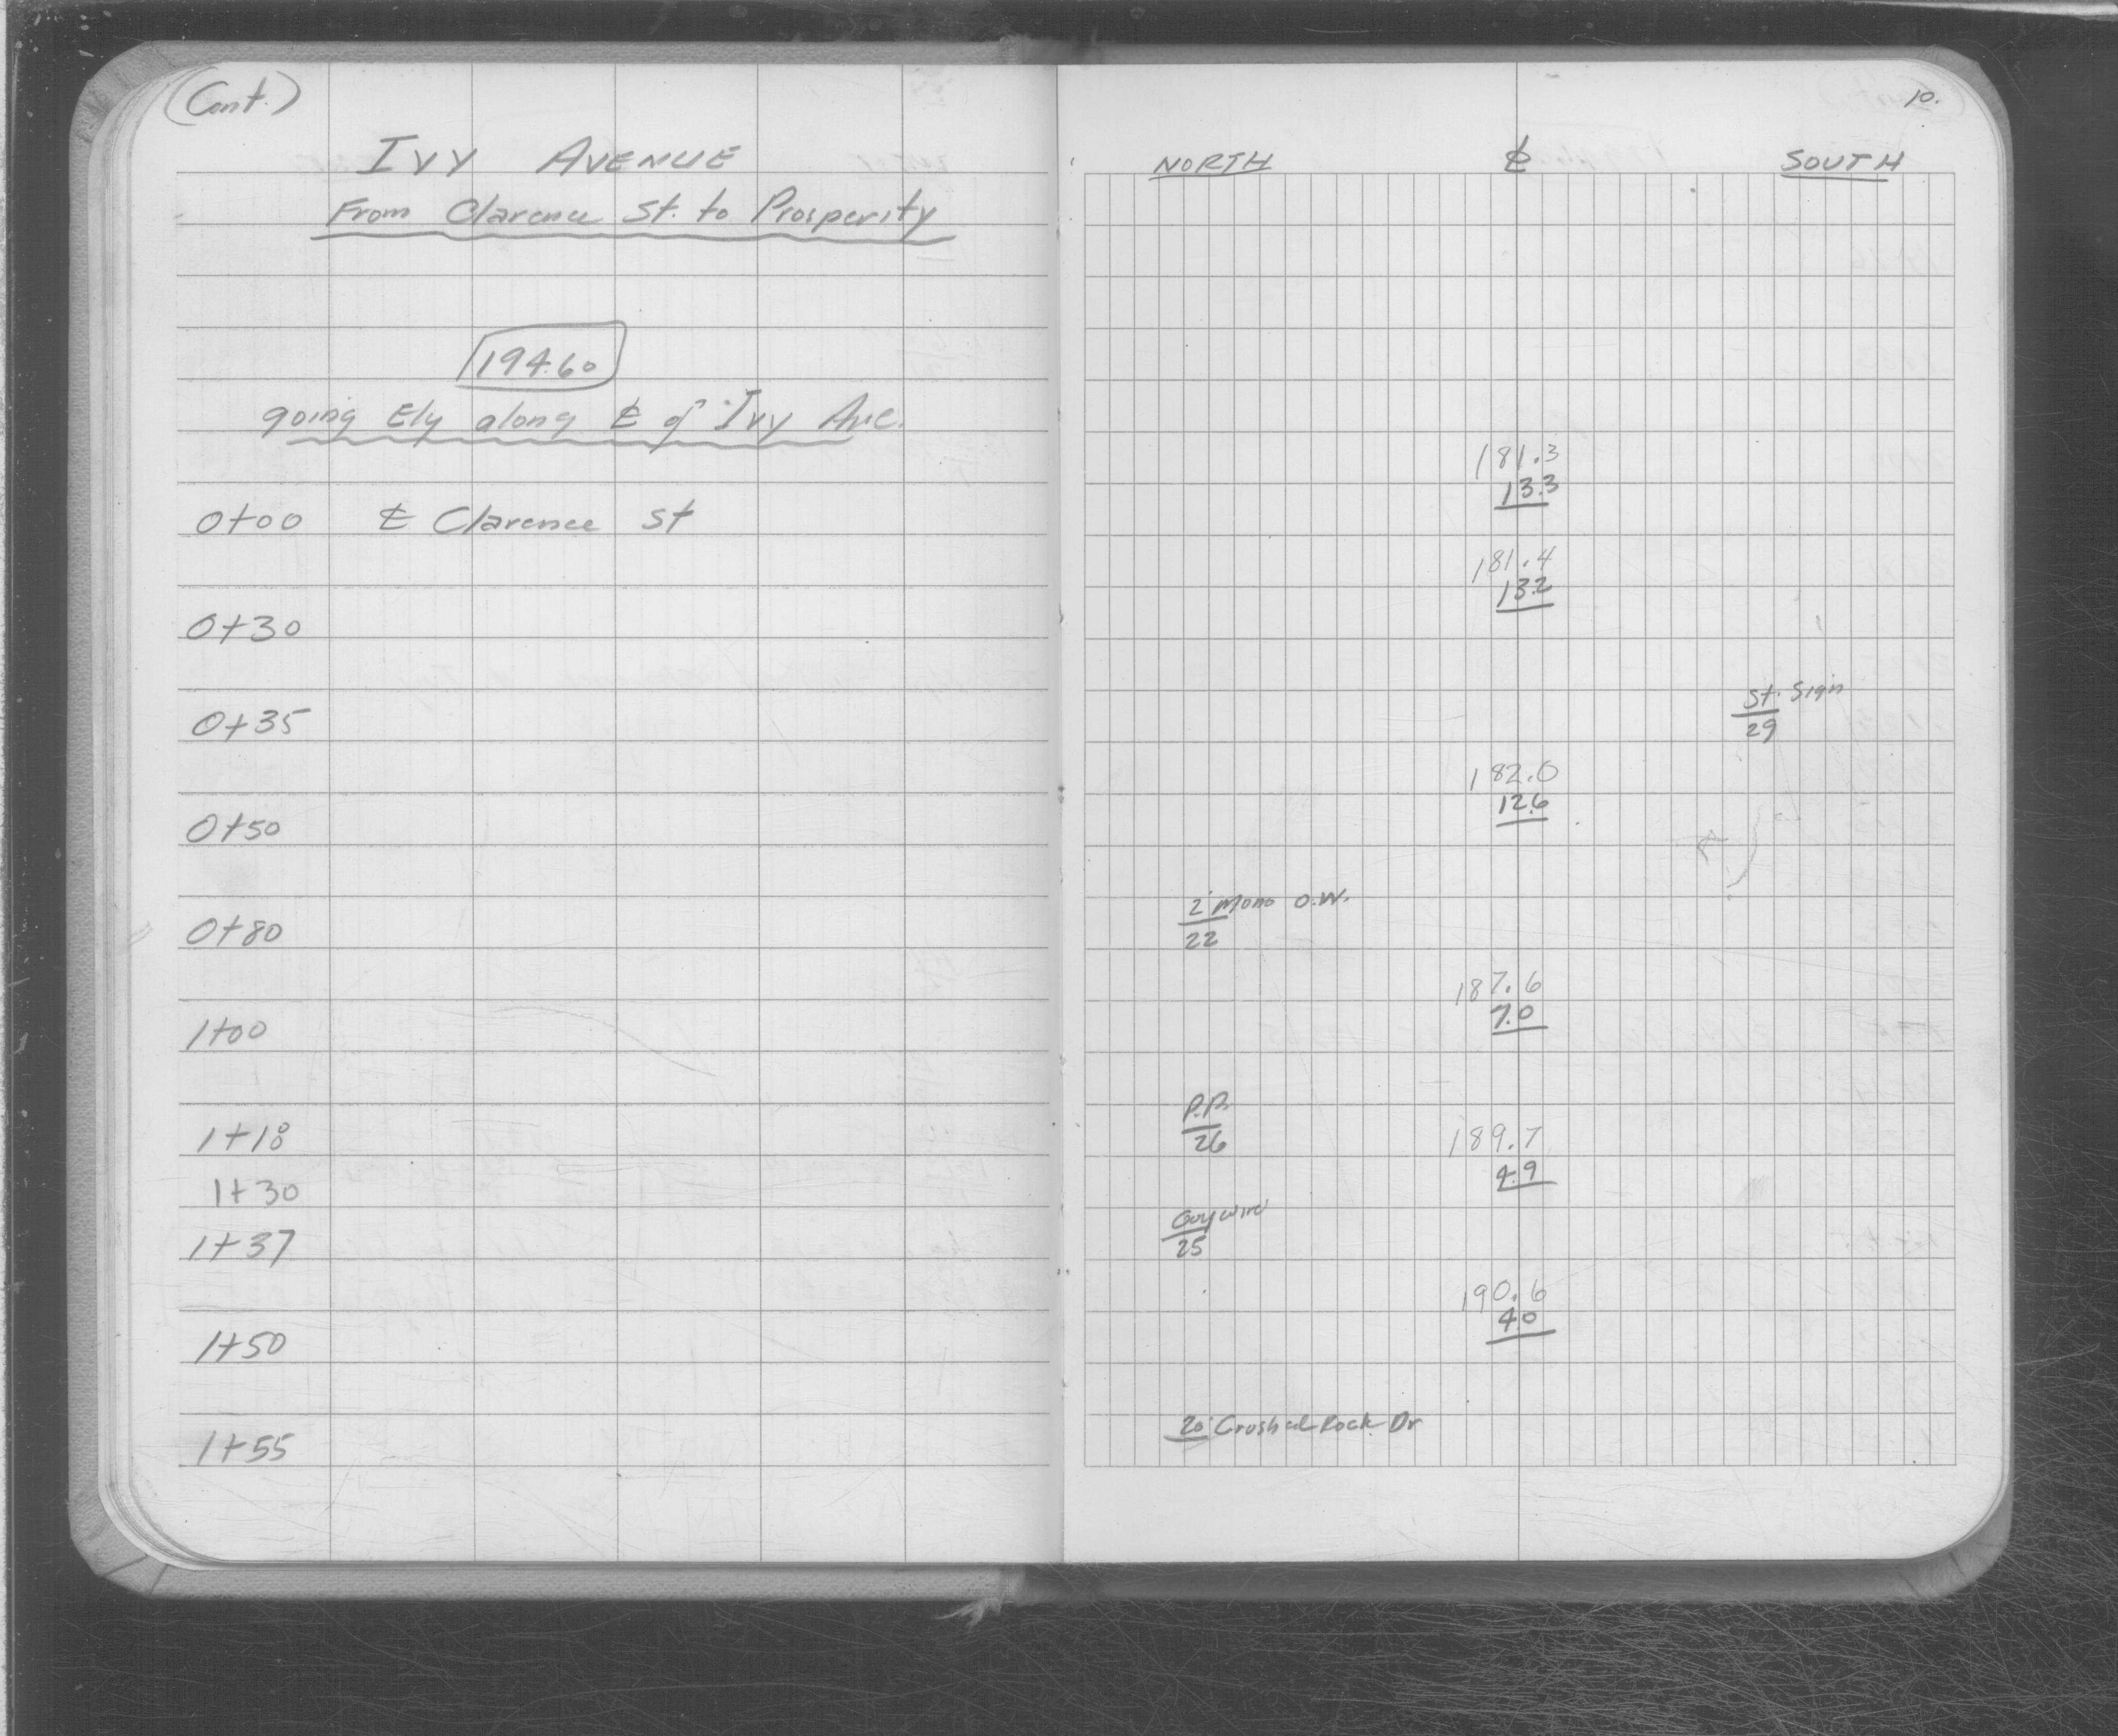 (Cont.)
IVY AVENUE
From Clarence St. to Prosperity
194.60
going Ely along ℄ of Ivy Ave.
0+00 ℄ Clarence St
0+30
0+35
0+50
0+80
1+00
1+18
1+30
1+37
1+50
1+55
10.
NORTH ℄ SOUTH
181.3
13.3
181.4
13.2
St. Sign
29
182.0
12.6
2' Mono O.W.
22
187.6
7.0
P.P.
26
189.7
4.9
Guy wire
25
190.6
4.0
20' Crushed Rock Dr